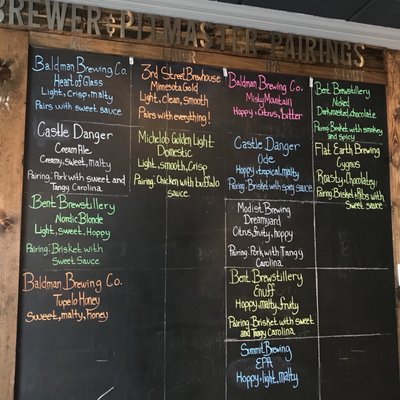 BREWER & PITMASTER PAIRINGS
Baldman Brewing Co.
Heart of Glass
Light, Crisp, malty
Pairs with sweet sauce
Castle Danger
Cream Ale
Creamy, sweet, malty
Pairing: Pork with sweet and
Tangy Carolina
Bent Brewstillery
Nordic Blonde
Light, sweet, Hoppy
Pairing: Brisket with
Sweet Sauce
Baldman Brewing Co.
Tupelo Honey
Sweet, malty, honey
3rd Street Brewhouse
Minnesota Gold
Light, clean, smooth
Pairs with everything!
Michelob Golden Light
Domestic
Light, smooth, Crisp
Pairing: Chicken with buffalo
sauce
Baldman Brewing Co.
Misty Mountain
Hoppy, Citrus, bitter
Castle Danger
Ode
Hoppy, tropical, malty
Pairing: Brisket with spicy sauce
Modist Brewing
Dreamyard
Citrus, fruity, hoppy
Pairing: Pork with Tangy
Carolina
Bent Brewstillery
Enuff
Hoppy, malty, fruity
Pairing: Brisket with sweet
and Tangy Carolina
Summit Brewing
EPA
Hoppy, light, malty
Bent Brewstillery
Dark, roasted, chocolatey
Pairing: Brisket with smokey
and spicy
Flat Earth Brewing
Cygnus
Roasty, Chocolatey
Pairing: Brisket, Ribs with
Sweet sauce